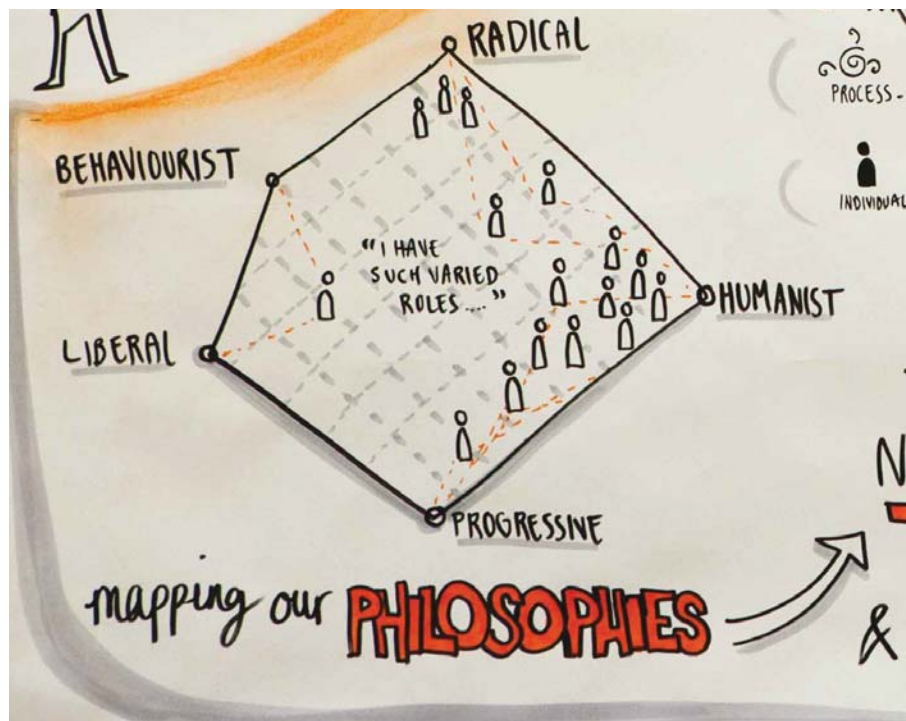 RADICAL
PROCESS-
BEHAVIOURIST
INDIVIDUAL
"I HAVE
SUCH VARIED
ROLES...."
HUMANIST
LIBERAL
PROGRESSIVE
mapping our PHILOSOPHIES
N
&